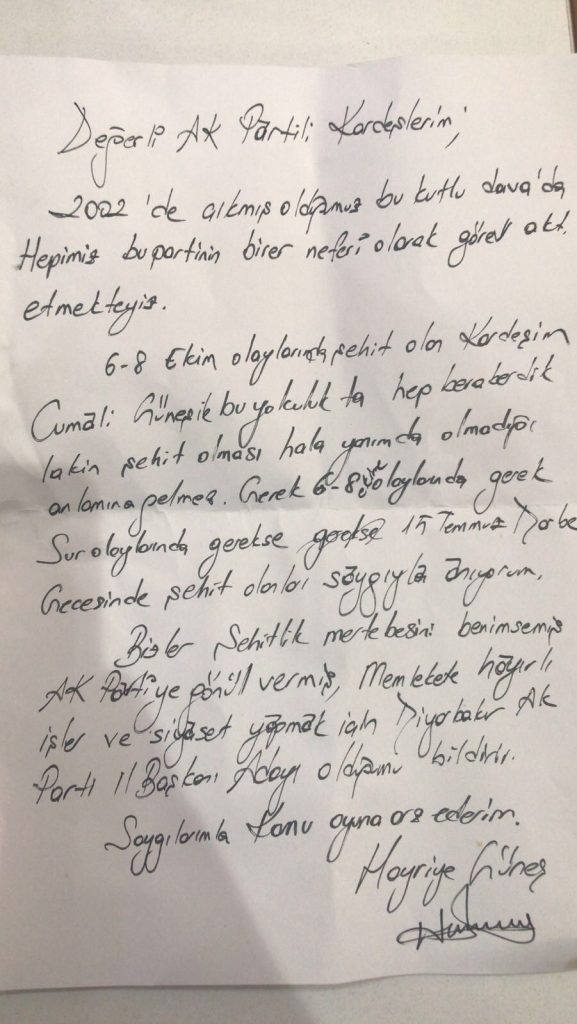 Değerli AK Partili Kardeşlerim;
2002'de çıkmış olduğumuz bu kutlu dava'da
Hepimiz bu partinin birer neferi olarak görev akt.
etmekteyiz.
6-8 Ekim olaylarında şehit olan Kardeşim
Cumali Güneşik bu yolculuk ta hep beraberdik
lakin şehit olması hala yanımda olmadığı
anlamına gelmez. Gerek 6-8 olaylarında gerek
Sur olaylarında gerekse gerekse 15 Temmuz Darbe
Gecesinde şehit olanları saygıyla anıyorum.
Bizler Şehitlik mertebesini benimsemiş
AK Parti'ye gönül vermiş, Memlekete hayırlı
işler ve siyaset yapmak için Diyarbakır Ak
Parti İl Başkanı Adayı olduğumu bildirir.
Saygılarımla Konu oyuna arz ederim.
Hayriye Güneş